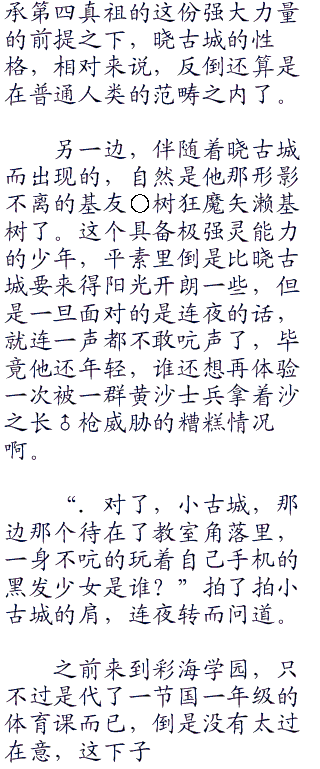 承第四真祖的这份强大力量
的前提之下，晓古城的性
格，相对来说，反倒还算是
在普通人类的范畴之内了。
另一边，伴随着晓古城
而出现的，自然是他那形影
不离的基友〇树狂魔矢濑基
树了。这个具备极强灵能力
的少年，平素里倒是比晓古
城要来得阳光开朗一些，但
是一旦面对的是连夜的话，
就连一声都不敢吭声了，毕
竟他还年轻，谁还想再体验
一次被一群黄沙士兵拿着沙
之长♂枪威胁的糟糕情况
啊。
“．对了，小古城，那
边那个待在了教室角落里，
一身不吭的玩着自己手机的
黑发少女是谁？”拍了拍小
古城的肩，连夜转而问道。
之前来到彩海学园，只
不过是代了一节国一年级的
体育课而已，倒是没有太过
在意，这下子